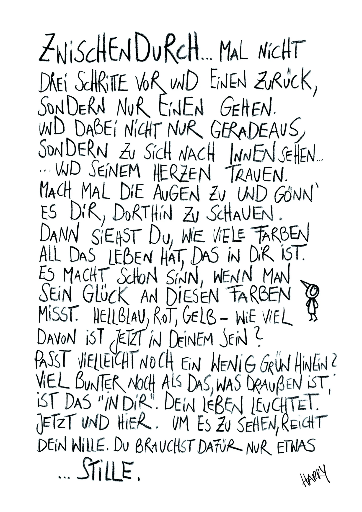 ZWISCHENDURCH... MAL NICHT
DREI SCHRITTE VOR UND EINEN ZURÜCK,
SONDERN NUR EINEN GEHEN.
UND DABEI NICHT NUR GERADEAUS,
SONDERN ZU SICH NACH INNEN SEHEN...
... UND SEINEM HERZEN TRAUEN.
MACH MAL DIE AUGEN ZU UND GÖNN'
ES DIR, DORTHIN ZU SCHAUEN.
DANN SIEHST DU, WIE VIELE FARBEN
ALL DAS LEBEN HAT, DAS IN DIR IST.
ES MACHT SCHON SINN, WENN MAN
SEIN GLÜCK AN DIESEN FARBEN
MISST. HELLBLAU, ROT, GELB - WIE VIEL
DAVON IST JETZT IN DEINEM SEIN?
PASST VIELLEICHT NOCH EIN WENIG GRÜN HINEIN?
VIEL BUNTER NOCH ALS DAS, WAS DRAUßEN IST,
IST DAS "IN DIR". DEIN LEBEN LEUCHTET.
JETZT UND HIER. UM ES ZU SEHEN, REICHT
DEIN WILLE. DU BRAUCHST DAFÜR NUR ETWAS
... STILLE.
HAPPY